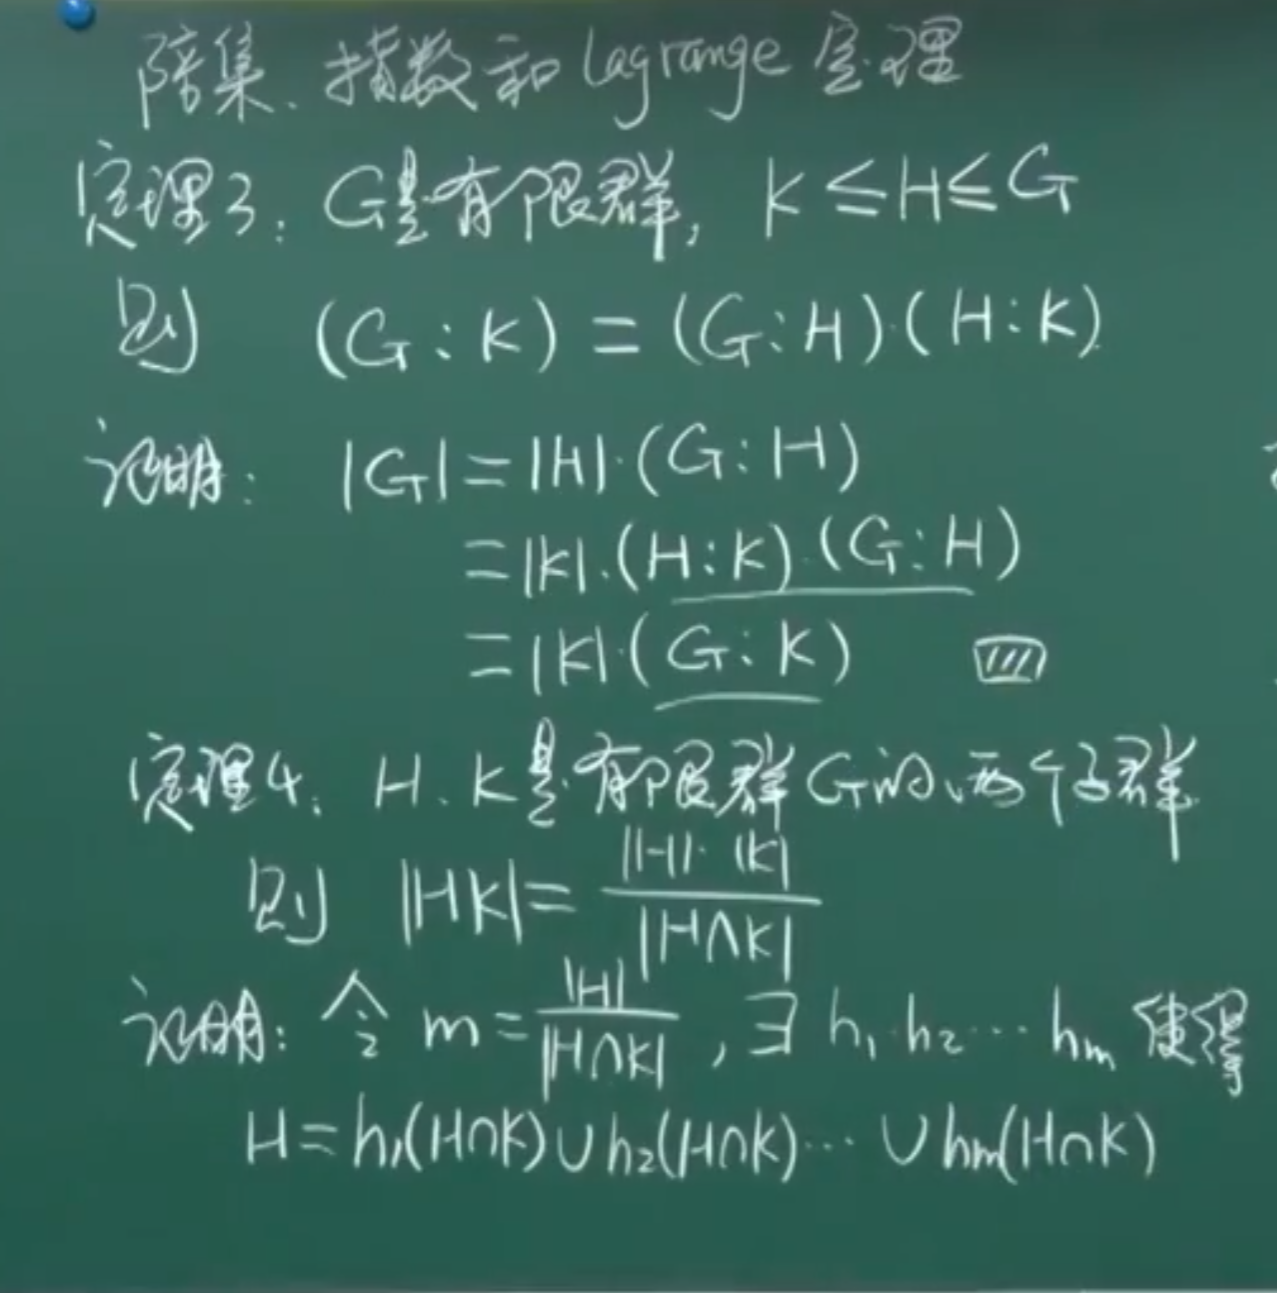 陪集、指数和Lagrange定理
定理3: G是有限群, K≤H≤G
则 (G:K)=(G:H)(H:K)
证明: |G|=|H|·(G:H)
=|K|·(H:K)·(G:H)
=|K|·(G:K)
定理4. H.K是有限群G的两个子群
则 |HK|=|H|·|K|/|H∩K|
证明: 令 m=|H|/|H∩K|, ∃ h₁ h₂ ⋯ hₘ 使得
H=h₁(H∩K)∪h₂(H∩K)⋯∪hₘ(H∩K)